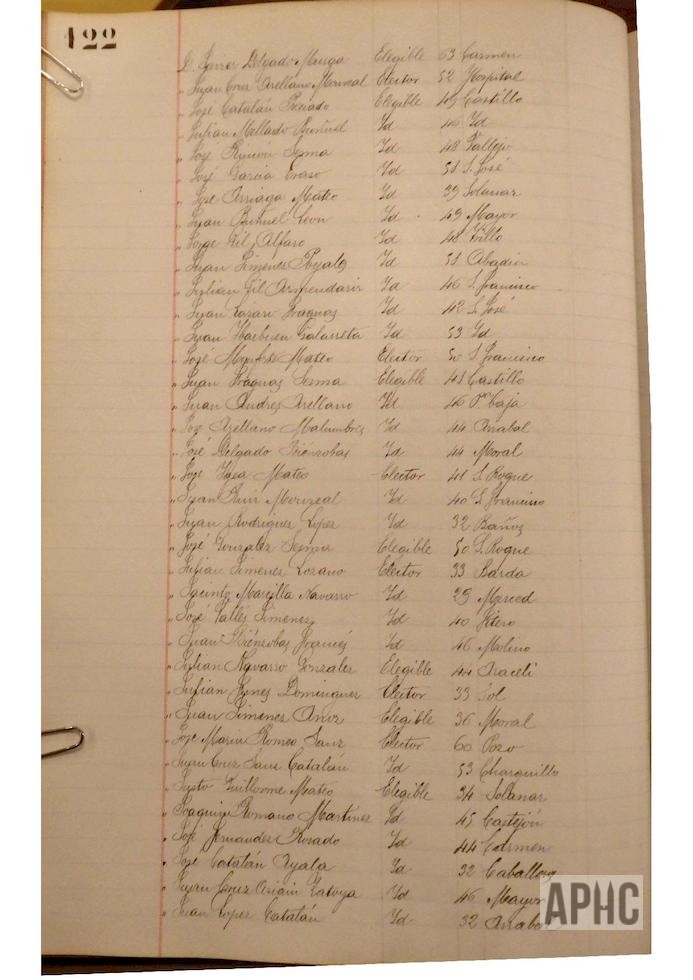 122
D. Javier Delgado Munga Elegible 63 Carmen
" Juan Cruz Arellano Monreal Elector 52 Hospital
" José Catalán Preciado Elegible 49 Castillo
" Julian Mellado Buñuel Id 46 Id
" José Rincón Sesma Id 48 Vallejo
" José Garcia Eraso Id 51 S. José
" José Arriaga Mateo Id 39 Solanar
" Juan Buñuel Leon Id 49 Mayor
" Jorge Gil Alfaro Id 48 Villo
" Juan Jimenez Poyales Id 51 Abadia
" Julian Gil Armendariz Id 46 S. Francisco
" Juan Lazaro Fraguas Id 42 S. José
" Juan Galarreta Id 53 Id
" José Mateo Elector 50 S. Francisco
" Juan Fraguas Sesma Elegible 41 Castillo
" Juan Andres Arellano Id 46 Caja
" José Arellano Malumbres Id 44 Arrabal
" José Delgado Biénzobas Id 44 Moral
" José Mateo Elector 41 S. Roque
" Juan Monreal Id 40 S. Francisco
" Juan Rodriguez Lopez Id 32 Baños
" José Gonzalez Sesma Elegible 50 S. Roque
" Julian Jimenez Lozano Elector 33 Barda
" Jacinto Marsilla Navarro Id 29 Merced
" José Vallés Jimenez Id 40 Hitero
" Juan Biénzobas Francés Id 46 Molino
" Julian Navarro Gonzalez Elegible 44 Araceli
" Julian Gines Dominguez Elector 33 Sol
" Juan Jimenez Elegible 36 Moral
" José Maria Romeo Sanz Elector 60 Pozo
" Juan Cruz Sanz Catalán Id 53 Charquillo
" Justo Guillorme Mateo Elegible 34 Solanar
" Joaquin Romano Martinez Id 45 Castejón
" José Fernandez Rosado Id 44 Carmen
" José Catalán Ayala Id 32 Caballeros
" Juan Cruz Latorre Id 46 Mayor
" Juan Lopez Catalán Id 32 Arrabal
APHC